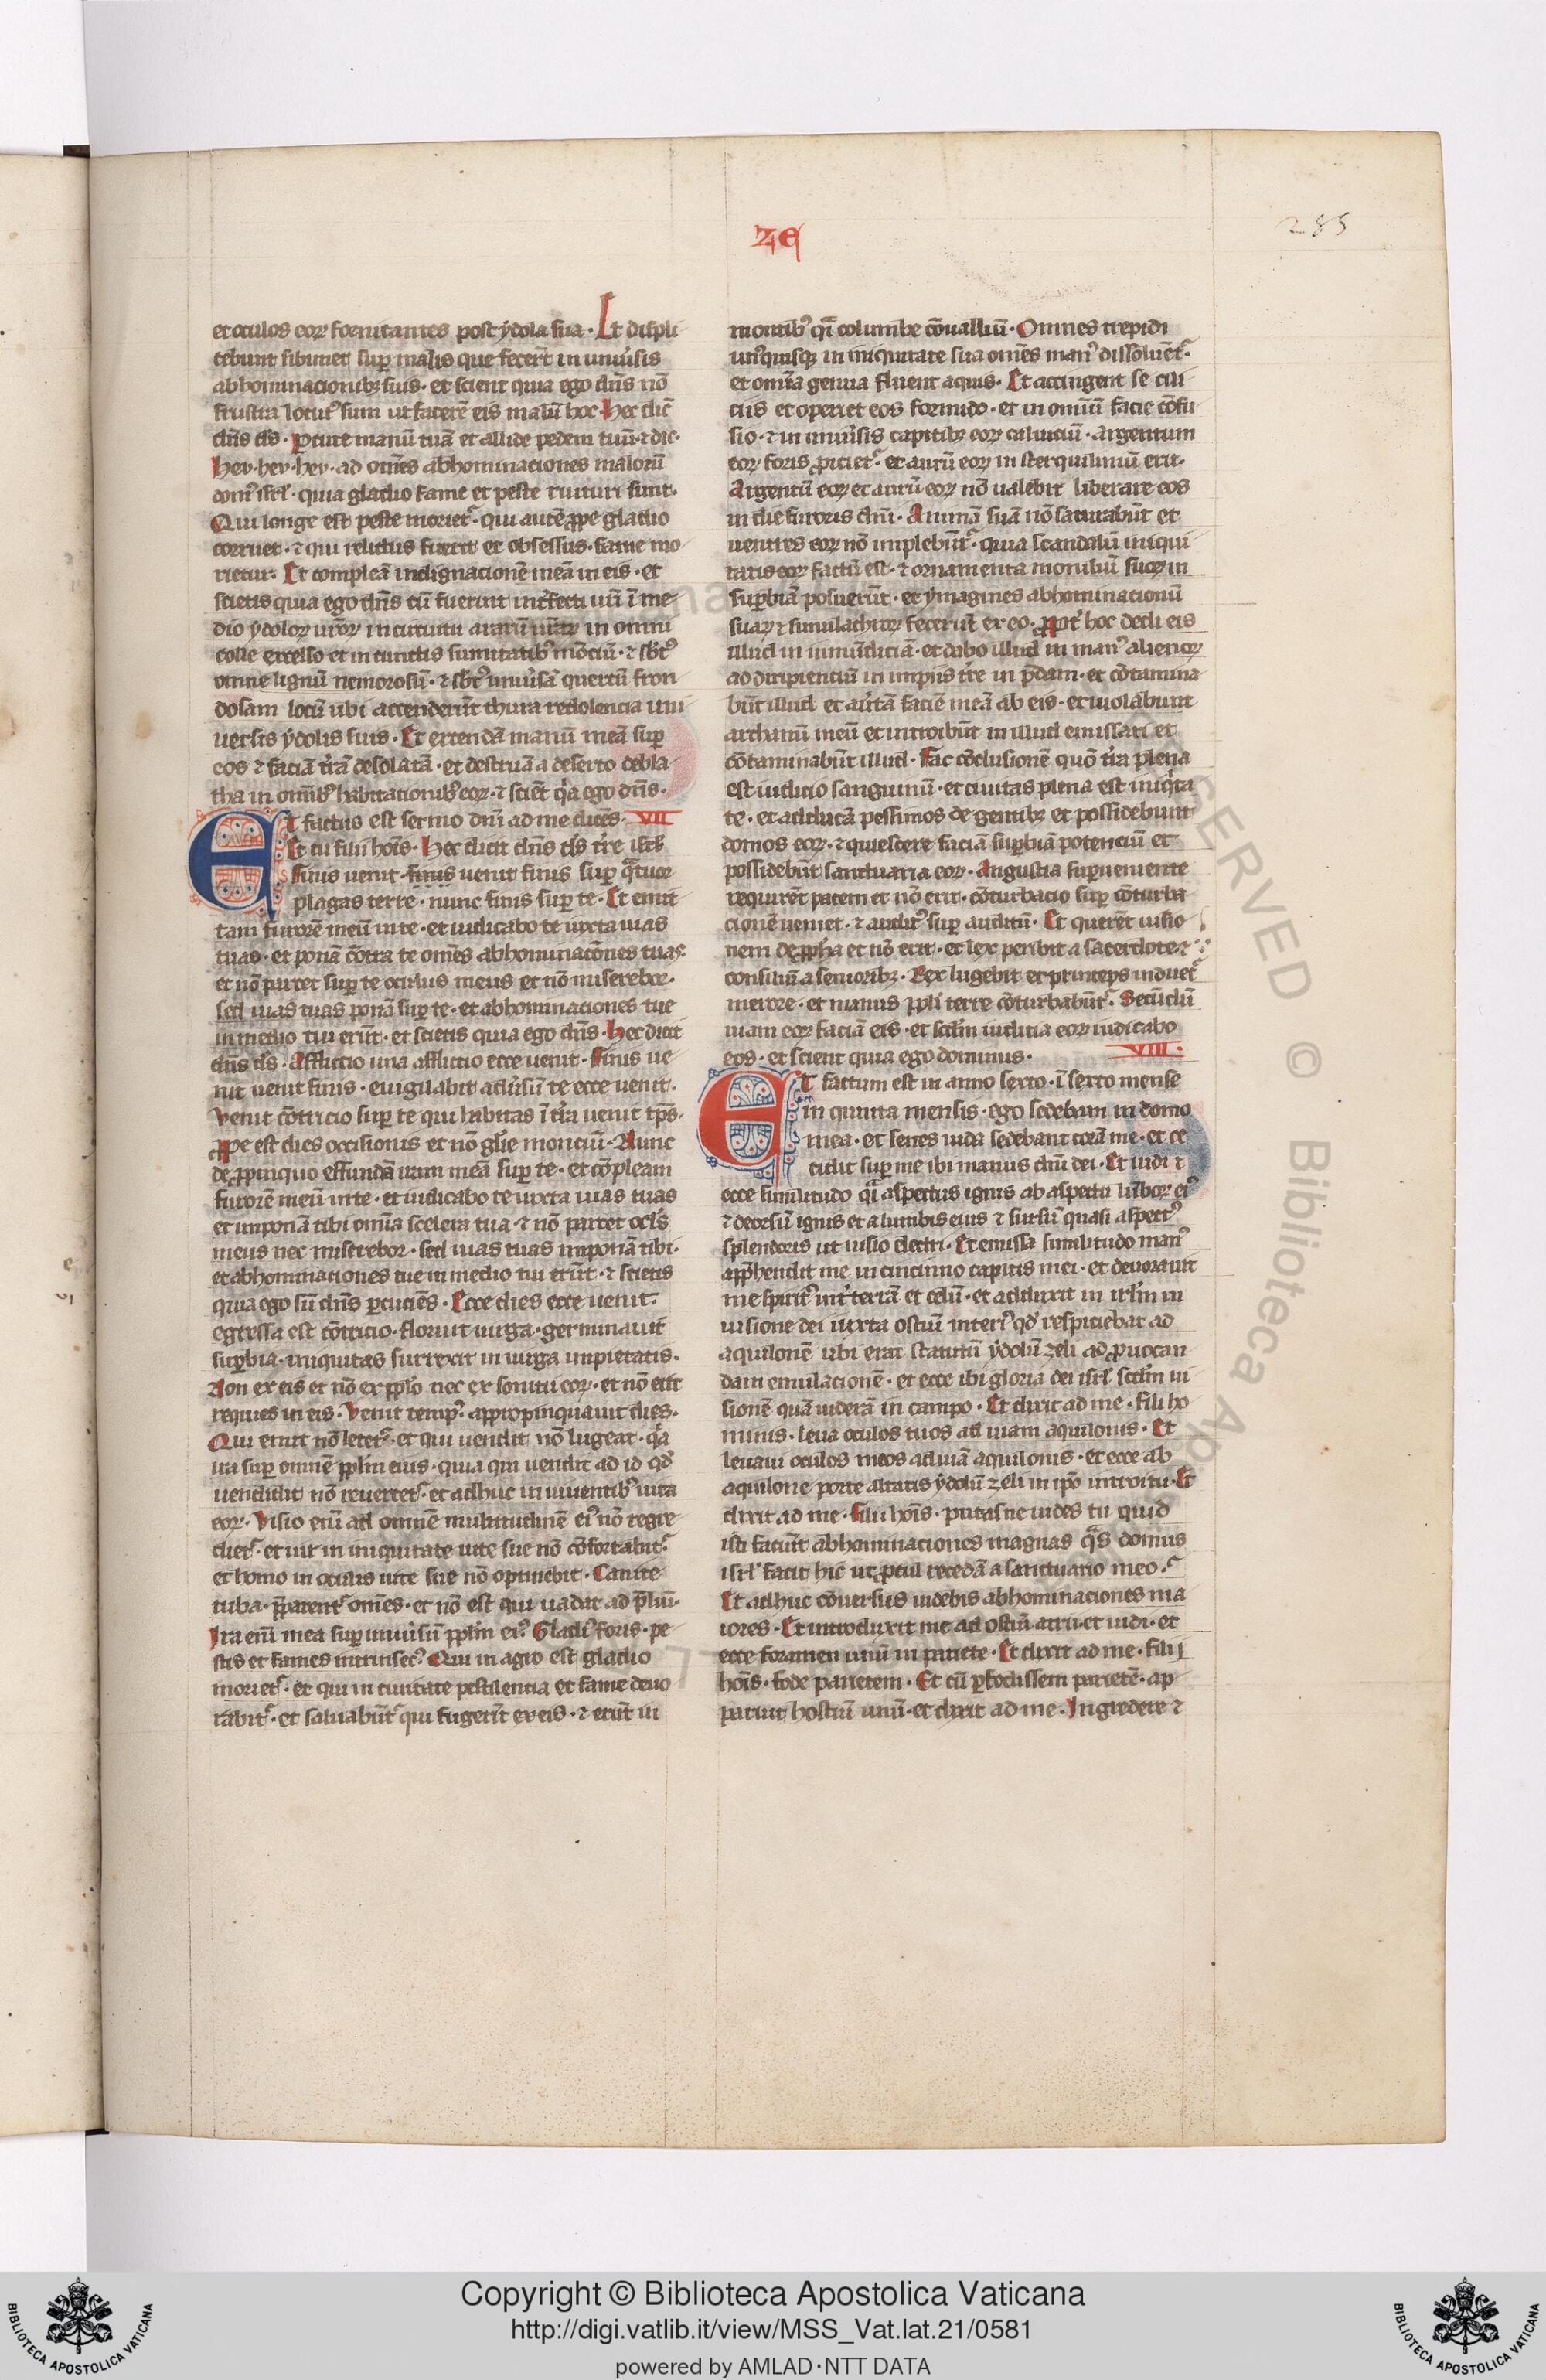 ze
285
et oculos eoꝝ fornicantes post ẏdola sua · Et displi
cebunt sibimet suꝑ malis que fecer̄t in uniu̾sis
abhominacionibꝫ suis · et scient quia ego dn̄s nō
frustra locutꝰ sum ut facerē eis malū hoc · Hec dic̄
dn̄s ds̄ · ꝑcute manū tuā et allide pedem tuū · ⁊ dic ·
Hev · hev · hev · ad om̄s abhominaciones malorū
domꝰ isrl̄ · quia gladio fame et peste ruituri sunt ·
Qui longe est peste moriet᷑ · qui autē ꝓpe gladio
corruet · ⁊ qui relictus fuerit et obsessus · fame mo
rietur · Et compleā indignacionē meā in eis · et
scietis quia ego dn̄s cū fuerint int̾fecti ur̄i ī me
dio ẏdoloꝝ ur̄oꝝ in circuitu ararū ur̄aꝝ in omni
colle excelso et in cunctis sumitatibꝰ mōciū · ⁊ sbt̾ꝰ
omne lignū nemorosū · ⁊ sbt̾ꝰ uniu̾sā quercū fron
dosam locū ubi accenderūt thura redolencia uni
uersis ẏdolis suis · Et extendā manū meā suꝑ
eos ⁊ faciā t̾rā desolatā · et destruā a deserto debla
tha in om̄ibꝰ habitacionibꝰ eoꝝ · ⁊ sciēt qͥa ego dn̄s ·
ET factus est sermo dn̄i ad me dicēs · VII
Et tu fili hoīs · Hec dicit dn̄s ds̄ t̾re isrl̄
Finis uenit · finis uenit finis suꝑ qͣtuor
plagas terre · nunc finis suꝑ te · Et emit
tam furorē meū in te · et iudicabo te iuxta uias
tuas · et ponā cōtra te om̄s abhominacōnes tuas ·
et nō parcet suꝑ te oculus meus et nō miserebor ·
sed uias tuas ponā suꝑ te · et abhominaciones tue
in medio tui erūt · et scietis quia ego dn̄s · Hec dicit
dn̄s ds̄ · Afflictio una afflictio ecce uenit · Finis ue
nit uenit finis · euigilabit adu̾sū te ecce uenit ·
Venit cōtricio suꝑ te qui habitas ī t̾ra uenit tp̄s ·
ꝓpe est dies occisionis et nō gl̄ie monciū · Nunc
de ꝓpinquo effundā iram meā suꝑ te · et cōpleam
furorē meū in te · et iudicabo te iuxta uias tuas
et imponā tibi om̄ia scelera tua ⁊ nō parcet ocl̄s
meus nec miserebor · sed uias tuas imponā tibi ·
et abhominaciones tue in medio tui erūt · ⁊ scietis
quia ego sū dn̄s ꝑcuciēs · Ecce dies ecce uenit ·
egressa est cōtricio · floruit uirga · germinauit
suꝑbia · iniquitas surrexit in uirga impietatis ·
Non ex eis et nō ex ppl̄o nec ex sonitu eoꝝ · et nō erit
requies in eis · Venit tempꝰ · appropinquauit dies ·
Qui emit nō letet᷑ · et qui uendit nō lugeat · qͥa
ira suꝑ omnē ppl̄m eius · quia qui uendit ad id qd̾
uendidit nō reuertet᷑ · et adhuc in uiuentibꝰ uita
eoꝝ · Visio eni̅ ad omnē multitudinē eiꝰ nō regre
diet᷑ · et uir in iniquitate uite sue nō cōfortabit᷑ ·
et homo in oculis uite sue nō optinebit · Canite
tuba · p̄parent᷑ om̄s · et nō est qui uadat ad p̄liū ·
Ira eni̅ mea suꝑ uniu̾sū ppl̄m eiꝰ · Gladiꝰ foris · pe
stis et fames intrinsecꝰ · Qui in agro est gladio
moriet᷑ · et qui in ciuitate pestilencia et fame deuo
rabit᷑ · et saluabūt᷑ qui fugerīt ex eis · ⁊ erūt in
montibꝰ qͣi columbe cōualliū · Omnes trepidi
unꝰquisqꝫ in iniquitate sua om̄es manꝰ dissoluēt᷑ ·
et om̄ia genua fluent aquis · Et accingent se cili
ciis et operiet eos formido · et in om̄i facie cōfu
sio · ⁊ in uniu̾sis capitibꝫ eoꝝ caluiciū · Argentum
eoꝝ foris ꝓiciet᷑ · et aurū eoꝝ in sterquiliniū erit ·
Argentū eoꝝ et aurū eoꝝ nō ualebit liberare eos
in die furoris dn̄i · Animā suā nō saturabūt et
uentres eoꝝ nō implebūt᷑ · quia scandalū iniqui
tatis eoꝝ factū est · ⁊ ornamenta moniliū suoꝝ in
suꝑbiā posuerūt · et ẏmagines abhominacionū
suaꝝ ⁊ simulachroꝝ fecerūt ex eo · ꝓpt̾ hoc dedi eis
illud in inmūdiciā · et dabo illud in manꝰ alienoꝝ
ad diripienciū in impiis t̾re in p̄dam · et cōtamina
būt illud et au̾tā faciē meā ab eis · et uiolabunt
archanū meū et introibūt in illud emissarī et
cōtaminabūt illud · Fac cōclusionē quō t̾ra plena
est iudicio sanguinū · et ciuitas plena est iniqͥta
te · et adducā pessimos de gentibꝫ et possidebunt
domos eoꝝ · ⁊ quiescere faciā suꝑbiā potenciū et
possidebūt sanctuaria eoꝝ · Angustia suꝑueniente
requirēt pacem et nō erit · cōturbacio suꝑ cōturba
cionē ueniet · ⁊ auditꝰ suꝑ auditū · Et querēt uisio
nem de ꝓpha et nō erit · et lex peribit a sacerdote ⁊
consiliū a senioribꝫ · Rex lugebit et princeps induet᷑
merore · et manus ppl̄i terre cōturbabūt᷑ · Secūdū
uiam eoꝝ faciā eis · et scd̄m iudicia eoꝝ iudicabo
eos · et scient quia ego dominus · VIII ·
ET factum est in anno sexto · ī sexto mense
in quinta mensis · ego sedebam in domo
mea · et senes iuda sedebant corā me · et ce
cidit suꝑ me ibi manus dn̄i dei · Et uidi ⁊
ecce similitudo qͣi aspectus ignis ab aspectu lūboꝝ eiꝰ
⁊ deorsū ignis et a lumbis eius ⁊ sursū quasi aspectꝰ
splendoris ut uisio electri · Et emissa similitudo manꝰ
app̄hendit me in cincinno capitis mei · et deuorauit
me spiritꝰ int̾ terrā et celū · et adduxit in irl̄m in
uisione dei iuxta ostiū interiꝰ qd̾ respiciebat ad
aquilonē ubi erat statutū ẏdolū zeli ad ꝓuocan
dam emulacionē · et ecce ibi gloria dei isrl̄ scd̄m ui
sionē quā uiderā in campo · Et dixit ad me · fili ho
minis · leua oculos tuos ad uiam aquilonis · Et
leuaui oculos meos ad uiā aquilonis · et ecce ab
aquilone porte altaris ẏdolū zeli in ip̄o introitu · Et
dixit ad me · Fili hoīs · putasne uides tu quid
isti faciūt abhominaciones magnas qͣs domus
isrl̄ facit hic ut ꝓcul recedā a sanctuario meo ·
Et adhuc cōuersus uidebis abhominaciones ma
iores · Et introduxit me ad ostiū atrii · et uidi · et
ecce foramen unū in pariete · Et dixit ad me · fili
hoīs · fode parietem · Et cū ꝑfodissem parietē · ap
paruit hostiū unū · et dixit ad me · Ingredere ⁊
Copyright © Biblioteca Apostolica Vaticana
http://digi.vatlib.it/view/MSS_Vat.lat.21/0581
powered by AMLAD·NTT DATA
BIBLIOTECA APOSTOLICA VATICANA
BIBLIOTECA APOSTOLICA VATICANA